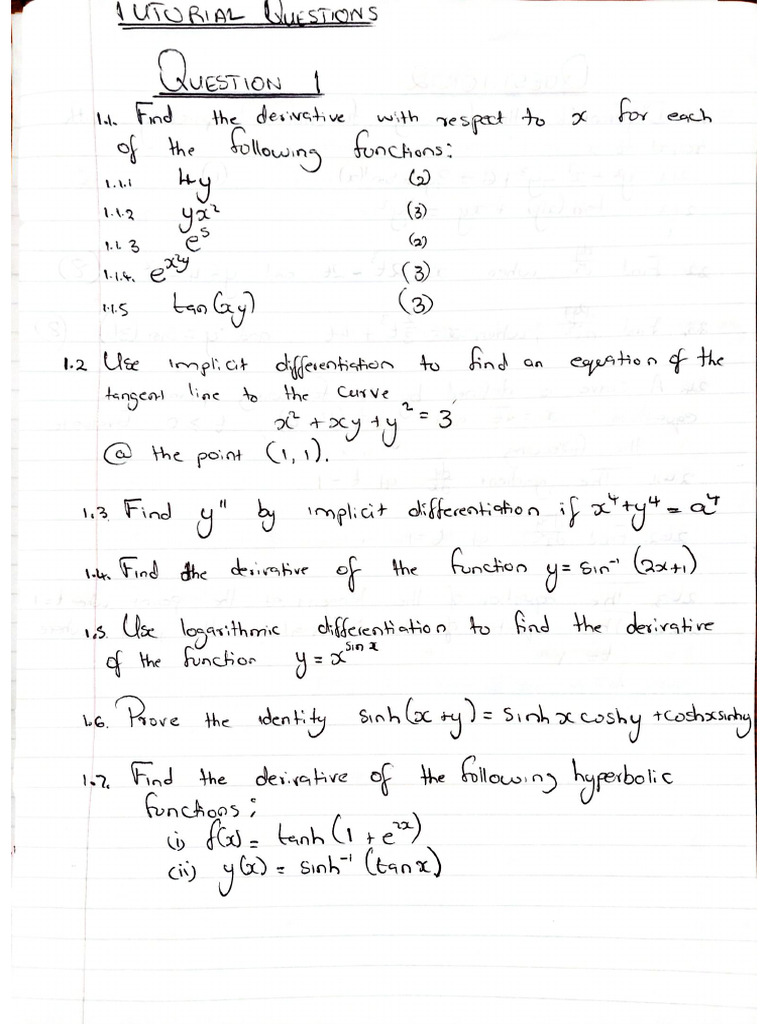 TUTORIAL QUESTIONS
QUESTION 1
1.1. Find the derivative with respect to x for each
of the following functions:
1.1.1 4y (2)
1.1.2 yx² (3)
1.1.3 e⁵ (2)
1.1.4. e^(x²y) (3)
1.1.5 tan(xy) (3)
1.2 Use implicit differentiation to find an equation of the
tangent line to the curve
x² + xy + y² = 3
@ the point (1, 1).
1.3. Find y'' by implicit differentiation if x⁴+y⁴ = a⁴
1.4. Find the derivative of the function y = sin⁻¹ (2x+1)
1.5. Use logarithmic differentiation to find the derivative
of the function y = x^(sin x)
1.6. Prove the identity sinh(x+y) = sinh x cosh y + cosh x sinh y
1.7. Find the derivative of the following hyperbolic
functions:
(i) f(x) = tanh (1 + e^(2x))
(ii) y(x) = sinh⁻¹ (tan x)